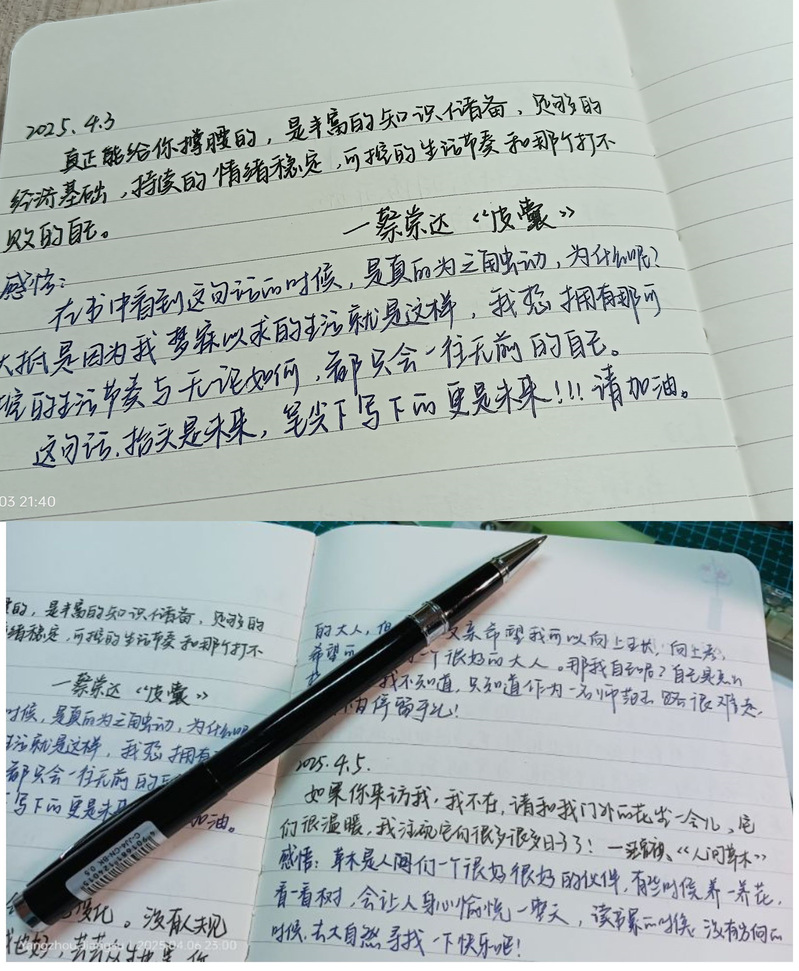 2025.4.3
真正能给你撑腰的，是丰富的知识储备，足够的
经济基础，持续的情绪稳定，可控的生活节奏和那个打不
败的自己。
—蔡崇达《皮囊》
感悟：
在书中看到这句话的时候，是真的为之触动，为什么呢？
大抵是因为我梦寐以求的生活就是这样，我想拥有那可
控的生活节奏与无论如何，都只会一往无前的自己。
这句话，抬头是未来，笔尖下写下的更是未来！！！请加油。
03 21:40
的，是丰富的知识储备，足够的
绪稳定，可控的生活节奏和那个打不
—蔡崇达《皮囊》
时候，是真的为之触动，为什么呢
生活就是这样，我想拥有
都只会一往无前的自己
写下的更是未来 加油。
没有人
的大人，但 父亲希望我可以向上
希望 一个很好的大人。那我自己呢？自己
我不知道，只知道作为一名师范生 路很难走，
停留
2025.4.5.
如果你来访我，我不在，请和我门外的花坐一会儿，它
们很温暖，我注视它们很多很多日子了！—《人间草木》
感悟：草木是人间们一个很好很好的伙伴，有些时候养一养花，
看一看树，会让人身心愉悦一整天，读书累的时候，没有方向的
时候，去大自然寻找一下快乐吧！
Yangzhou·Jiangsu | 2025.04.06 23:00